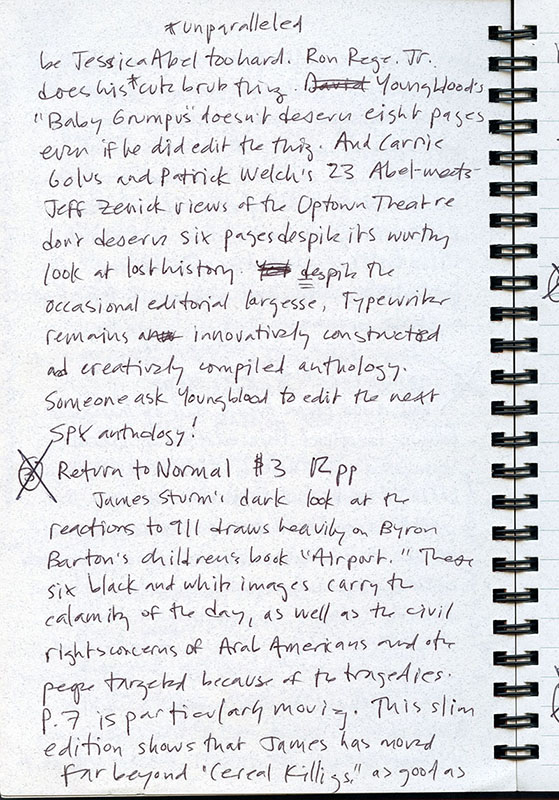 *unparalleled
be Jessica Abel too hard. Ron Rege. Jr.
does his * cute brut thing. David Youngblood's
"Baby Grumpus" doesn't deserve eight pages
even if he did edit the thing. And Carrie
Golus and Patrick Welch's 23 Abel-meets-
Jeff Zenick views of the Uptown Theatre
don't deserve six pages despite its worthy
look at lost history. despite the
occasional editorial largesse, Typewriter
remains an innovatively constructed
and creatively compiled anthology.
Someone ask Youngblood to edit the next
SPX anthology!
3 Return to Normal $3 12pp
James Sturm's dark look at the
reactions to 911 draws heavily on Byron
Barton's children's book "Airport." These
six black and white images carry the
calamity of the day, as well as the civil
rights concerns of Arab Americans and othr
people targeted because of the tragedies.
P. 7 is particularly moving. This slim
edition shows that James has moved
far beyond "Cereal Killings," as good as